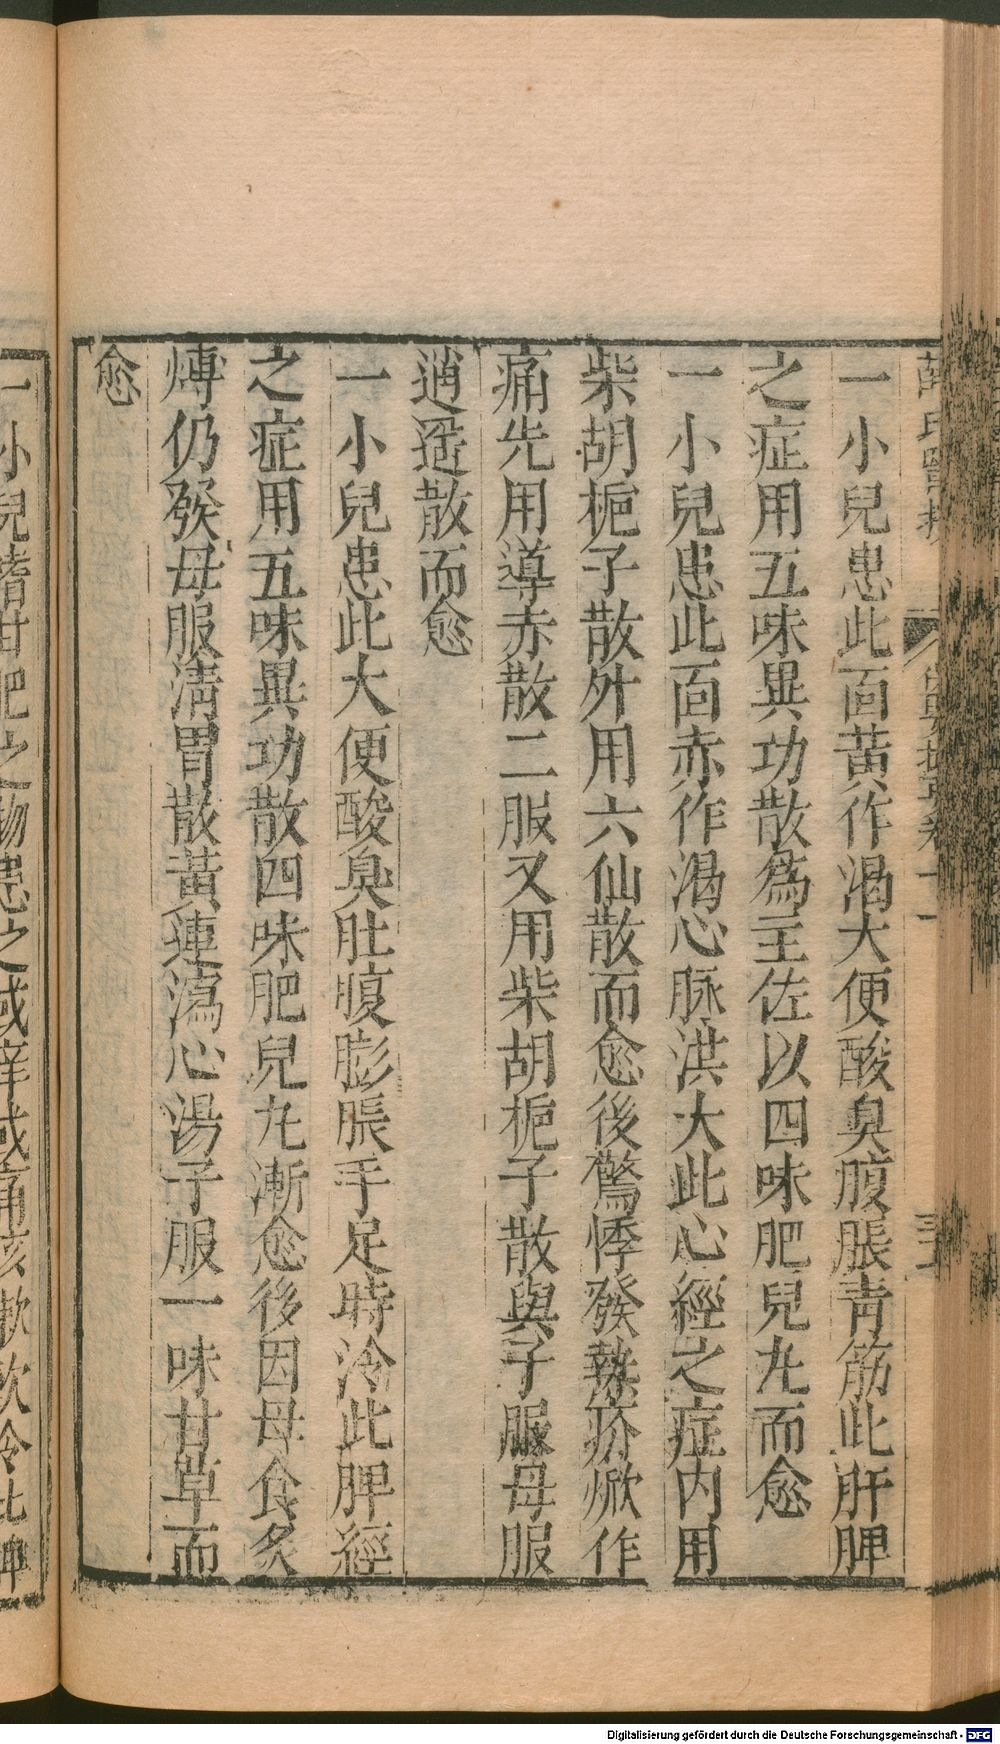 一小兒患此面黃作渴大便酸臭腹脹青筋此肝脾
之症用五味異功散爲主佐以四味肥兒丸而愈
一小兒患此面赤作渴心脉洪大此心經之症内用
柴胡梔子散外用六仙散而愈後驚悸發熱疥焮作
痛先用導赤散二服又用柴胡梔子散與子服母服
逍遥散而愈
一小兒患此大便酸臭肚腹膨脹手足時冷此脾經
之症用五味異功散四味肥兒丸漸愈後因母食炙
煿仍發母服清胃散黃連瀉心湯子服一味甘草而
愈
一小兒嗜甘肥之物患之或痒或痛咳嗽飲冷此脾
Digitalisierung gefördert durch die Deutsche Forschungsgemeinschaft - DFG